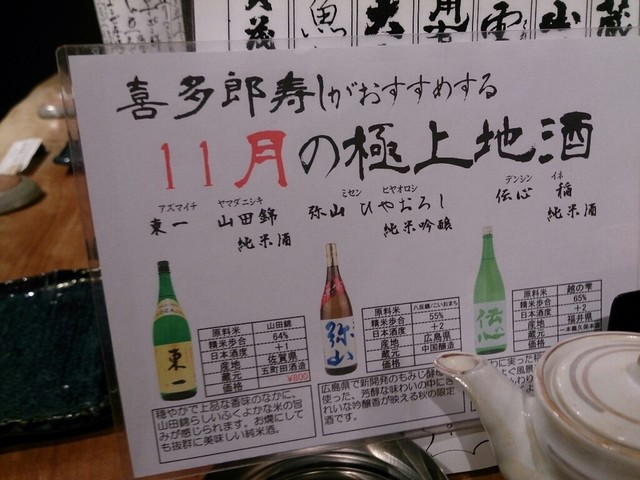 魚
蔵
喜多郎寿しがおすすめする
11月の極上地酒
アズマイチ ヤマダニシキ
東一 山田錦
純米酒
ミセン ヒヤオロシ
弥山 ひやおろし
純米吟醸
デンシン イネ
伝心 稲
純米酒
東一
原料米 山田錦
精米歩合 64%
日本酒度 +1
産地 佐賀県
蔵元 五町田酒造
価格 ¥800
穏やかで上品な香味のなかに、
山田錦らしいふくよかな米の旨
みが感じられます。お燗にして
も抜群に美味しい純米酒。
弥山
原料米 八反錦/こいおまち
精米歩合 55%
日本酒度 +2
産地 広島県
蔵元 中国醸造
価格
広島県で新開発のもみじ酵
使った、芳醇な味わいの中にき
れいな吟醸香が映える秋の限定
酒です。
伝心
原料米 越の雫
精米歩合 65%
日本酒度 +2
産地 福井県
蔵元 一本義久保本店
価格